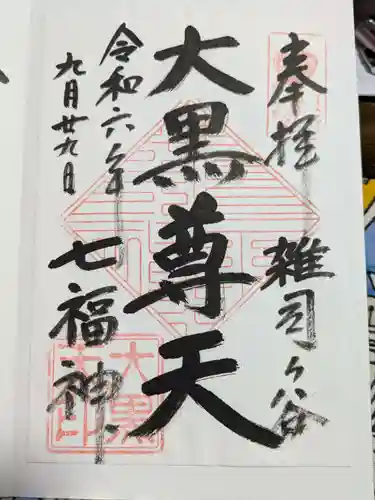 奉拝
雑司ヶ谷
大黒尊天
令和六年
九月廿九日
七福神